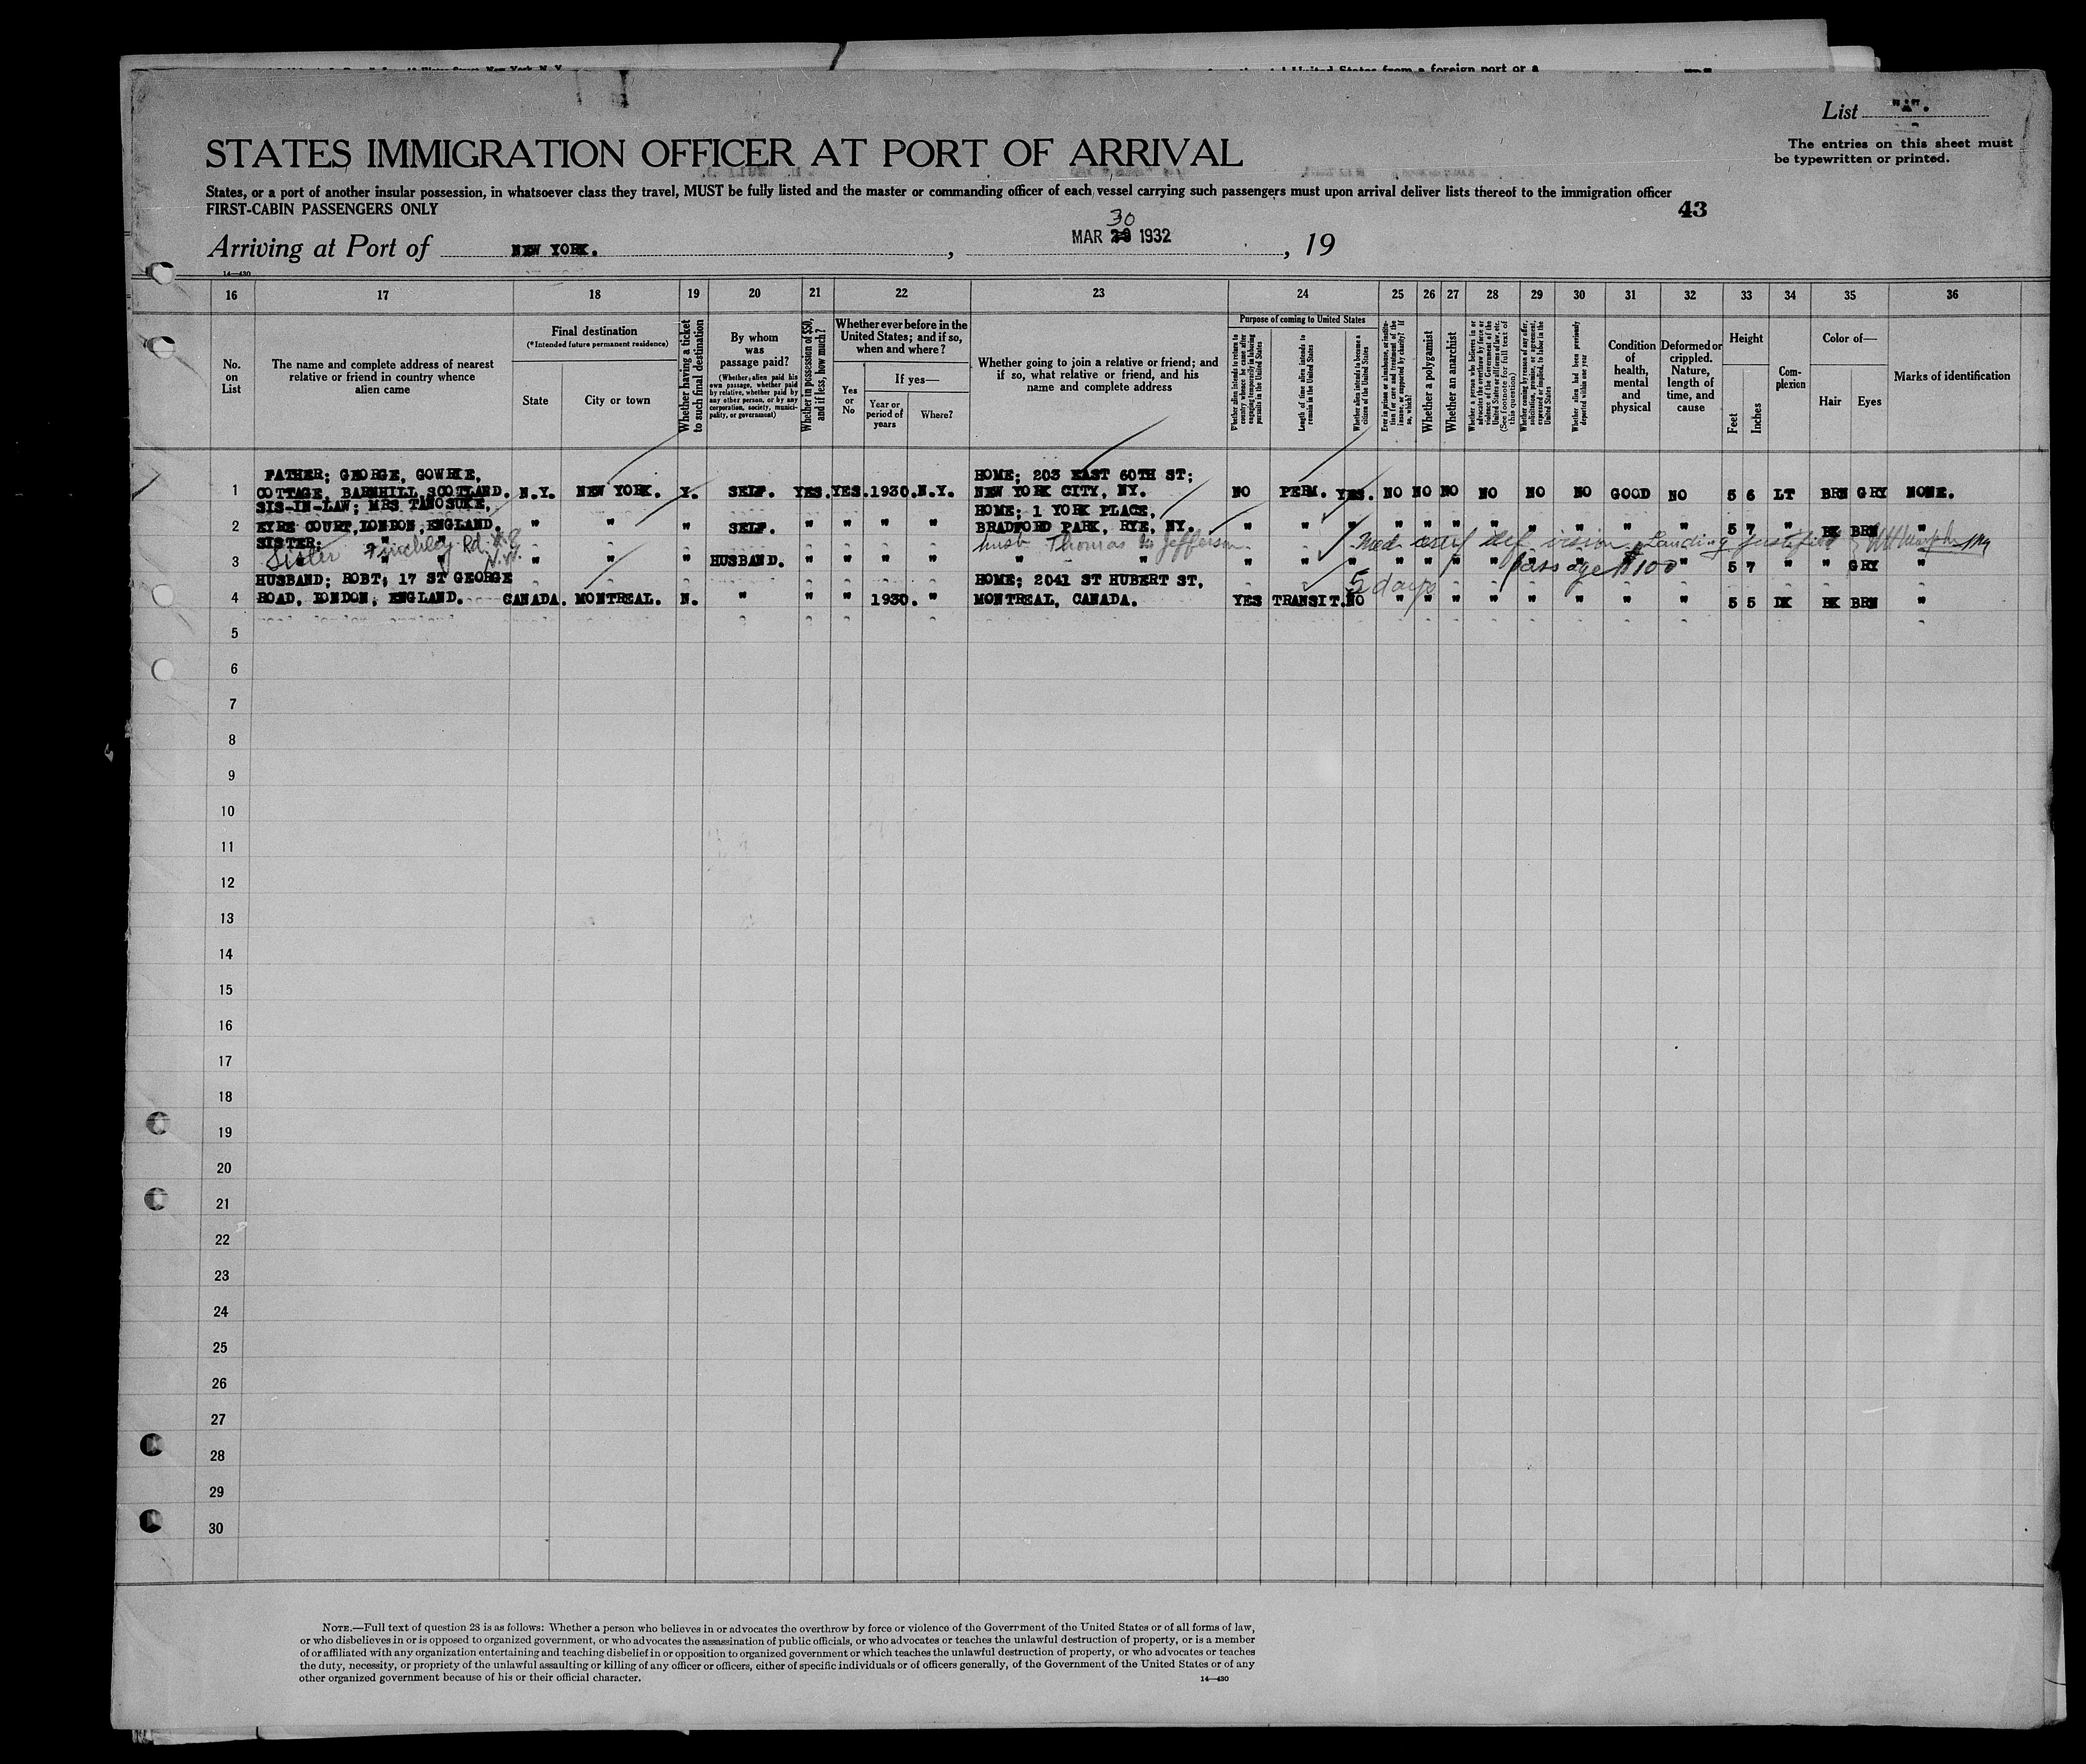 List "A".
The entries on this sheet must
be typewritten or printed.
STATES IMMIGRATION OFFICER AT PORT OF ARRIVAL
States, or a port of another insular possession, in whatsoever class they travel, MUST be fully listed and the master or commanding officer of each vessel carrying such passengers must upon arrival deliver lists thereof to the immigration officer
FIRST-CABIN PASSENGERS ONLY
43
30
Arriving at Port of NEW YORK. , MAR 29 1932 , 19
14—430
16 17 18 19 20 21 22 23 24 25 26 27 28 29 30 31 32 33 34 35 36
No.
on
List
The name and complete address of nearest
relative or friend in country whence
alien came
Final destination
(*Intended future permanent residence)
State
City or town
Whether having a ticket
to such final destination
By whom
was
passage paid?
(Whether alien paid his
own passage, whether paid
by relative, whether paid by
any other person, or by any
corporation, society, munici-
pality, or government)
Whether in possession of $50,
and if less, how much?
Whether ever before in the
United States; and if so,
when and where?
Yes
or
No
If yes—
Year or
period of
years
Where?
Whether going to join a relative or friend; and
if so, what relative or friend, and his
name and complete address
Purpose of coming to United States
Whether alien intends to return to
country whence he came after
engaging temporarily in laboring
pursuits in the United States
Length of time alien intends to
remain in the United States
Whether alien intends to become a
citizen of the United States
Ever in prison or almshouse, or institu-
tion for care and treatment of the
insane, or supported by charity? If
so, which?
Whether a polygamist
Whether an anarchist
Whether a person who believes in or
advocates the overthrow by force or
violence of the Government of the
United States or all forms of law, etc.
(See footnote for full text of
this question)
Whether coming by reason of any offer,
solicitation, promise, or agreement,
expressed or implied, to labor in the
United States
Whether alien had been previously
deported within one year
Condition
of
health,
mental
and
physical
Deformed or
crippled.
Nature,
length of
time, and
cause
Height
Feet
Inches
Com-
plexion
Color of—
Hair
Eyes
Marks of identification
FATHER; GEORGE, GOWRIE, HOME; 203 EAST 60TH ST;
1 COTTAGE, BARNHILL SCOTLAND. N.Y. NEW YORK. Y. SELF. YES. YES. 1930. N.Y. NEW YORK CITY, NY. NO PERM. YES. NO NO NO NO NO NO GOOD NO 5 6 LT BRN GRY NONE.
SIS-IN-LAW; MRS TANOSUKE, HOME; 1 YORK PLACE,
2 EYRE COURT, LONDON, ENGLAND. " " " SELF. " " " " BRADFORD PARK, RYE, NY. " " " " " " " " " " " 5 7 " BK BRN "
SISTER; " "
Sister Finchley Rd. N.W. 8 husb Thomas Jefferson Med cert def vision Landing justified
3 " " " HUSBAND. " " " " " " " " " " " " " " " " " 5 7 " " GRY "
passage $100
HUSBAND; ROBT; 17 ST GEORGE HOME; 2041 ST HUBERT ST, 5 days
4 ROAD, LONDON, ENGLAND. CANADA. MONTREAL. N. " " " 1930. " MONTREAL, CANADA. YES TRANSIT. NO " " " " " " " " 5 5 DK BK BRN "
5
6
7
8
9
10
11
12
13
14
15
16
17
18
19
20
21
22
23
24
25
26
27
28
29
30
NOTE.—Full text of question 28 is as follows: Whether a person who believes in or advocates the overthrow by force or violence of the Government of the United States or of all forms of law,
or who disbelieves in or is opposed to organized government, or who advocates the assassination of public officials, or who advocates or teaches the unlawful destruction of property, or is a member
of or affiliated with any organization entertaining and teaching disbelief in or opposition to organized government or which teaches the unlawful destruction of property, or who advocates or teaches
the duty, necessity, or propriety of the unlawful assaulting or killing of any officer or officers, either of specific individuals or of officers generally, of the Government of the United States or of any
other organized government because of his or their official character.
14—430